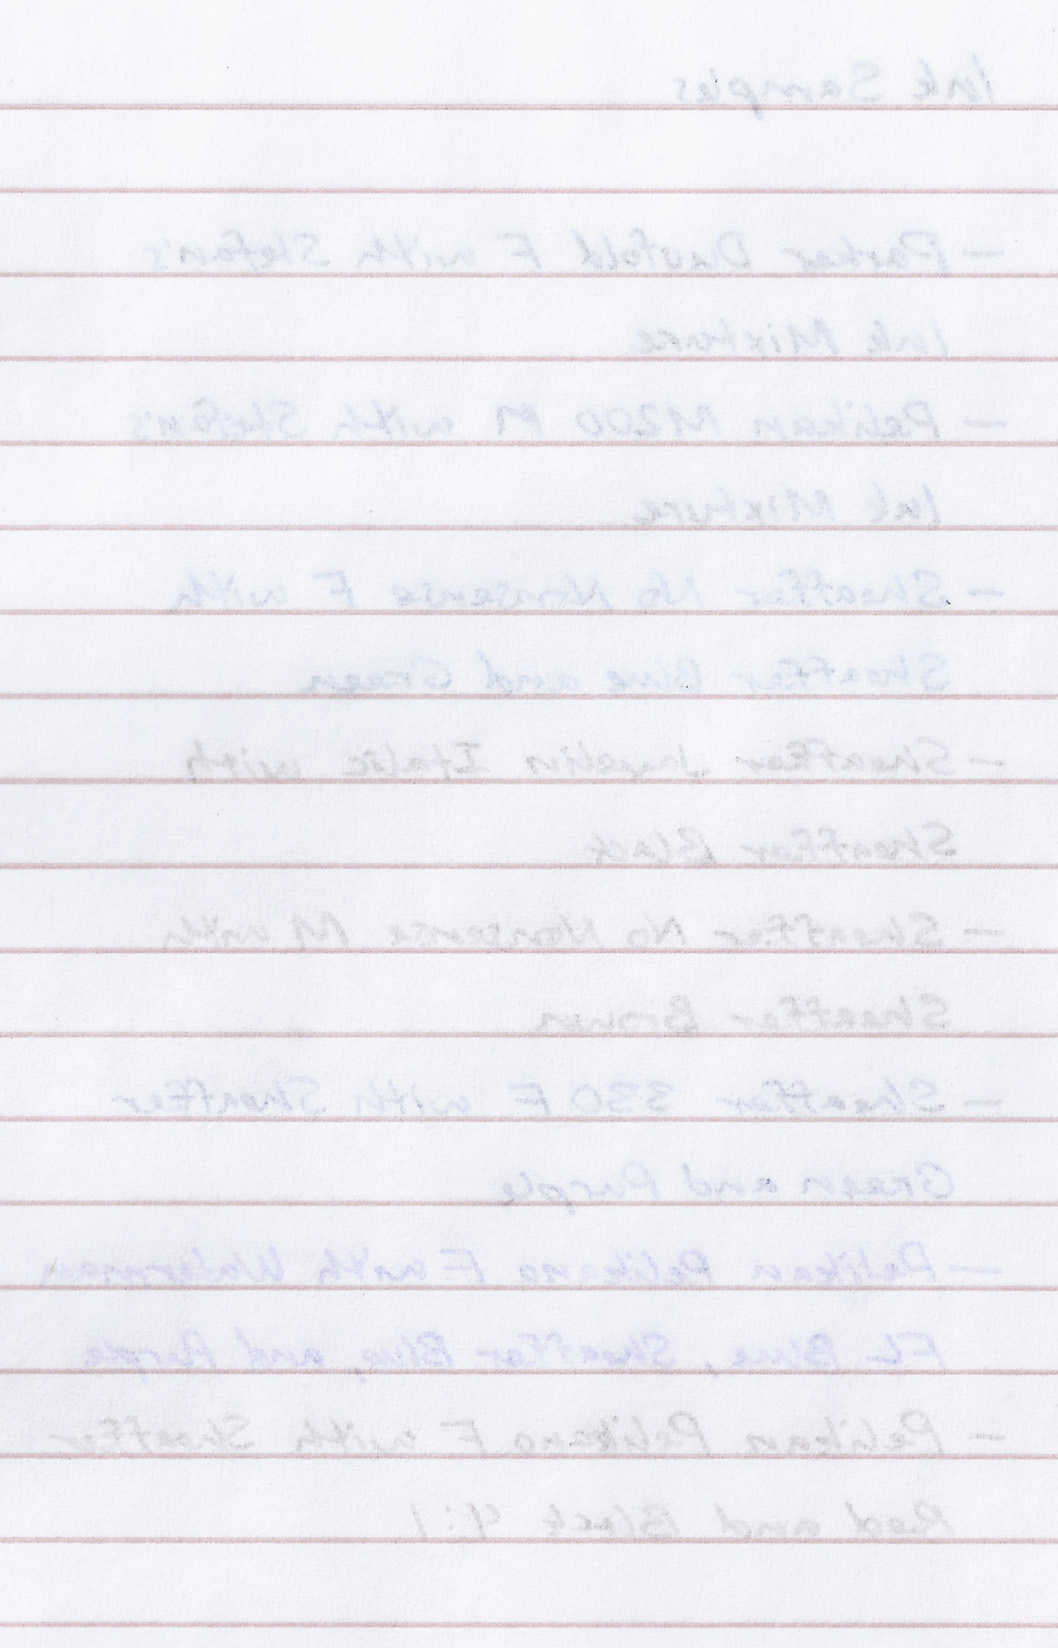 Ink Samples
— Parker Duofold F with Stefan's
Ink Mixture
— Pelikan M200 M with Stefan's
Ink Mixture
— Sheaffer No Nonsense F with
Sheaffer Blue and Green
— Sheaffer Javelin Italic with
Sheaffer Black
— Sheaffer No Nonsense M with
Sheaffer Brown
— Sheaffer 330 F with Sheaffer
Green and Purple
— Pelikan Pelikano F with Waterman
FL Blue, Sheaffer Blue, and Purple
— Pelikan Pelikano F with Sheaffer
Red and Black 4:1